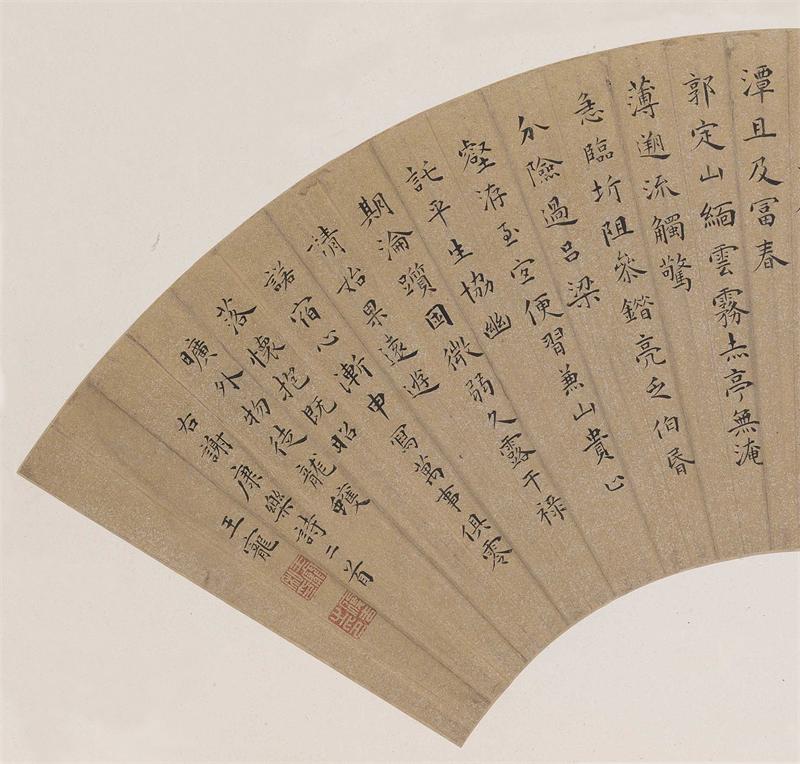 潭且及冨春
郭定山緬雲霧赤亭無淹
薄遡流觸驚
急臨圻阻參錯亮乏伯昏
分險過呂梁
壑洊至宜便習兼山貴止
託平生協幽
期淪躓困微弱久露干祿
請始果遠遊
諾宿心漸申寫萬事俱零
落懷抱既昭
曠外物徒龍蠖
右謝康樂詩二首
王寵